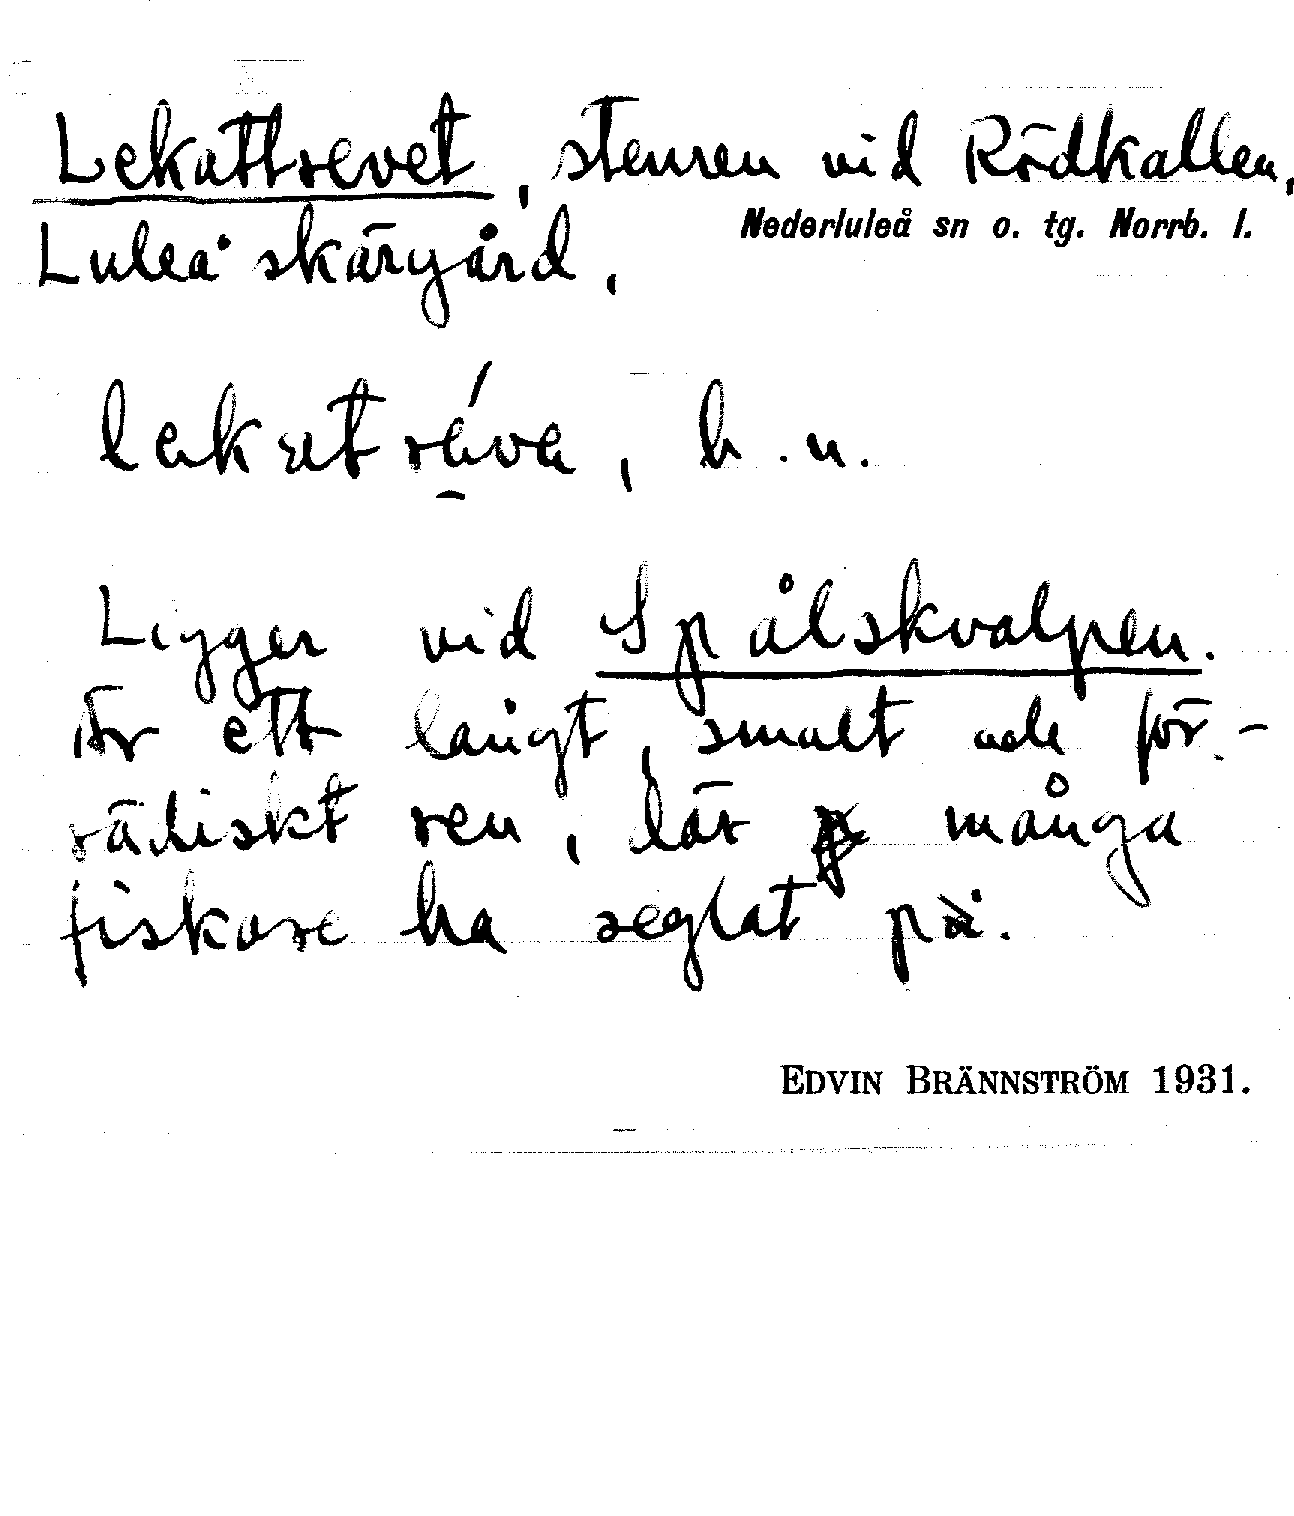 Lekattrevet, stenrev vid Rödkallen,
Nederluleå sn o. tg. Norrb. l.
Luleå skärgård.
lekaträ́va, b.n.
Ligger vid Spålskvalpen.
Är ett långt, smalt och för-
rädiskt rev, där många
fiskare ha seglat på.
EDVIN BRÄNNSTRÖM 1931.